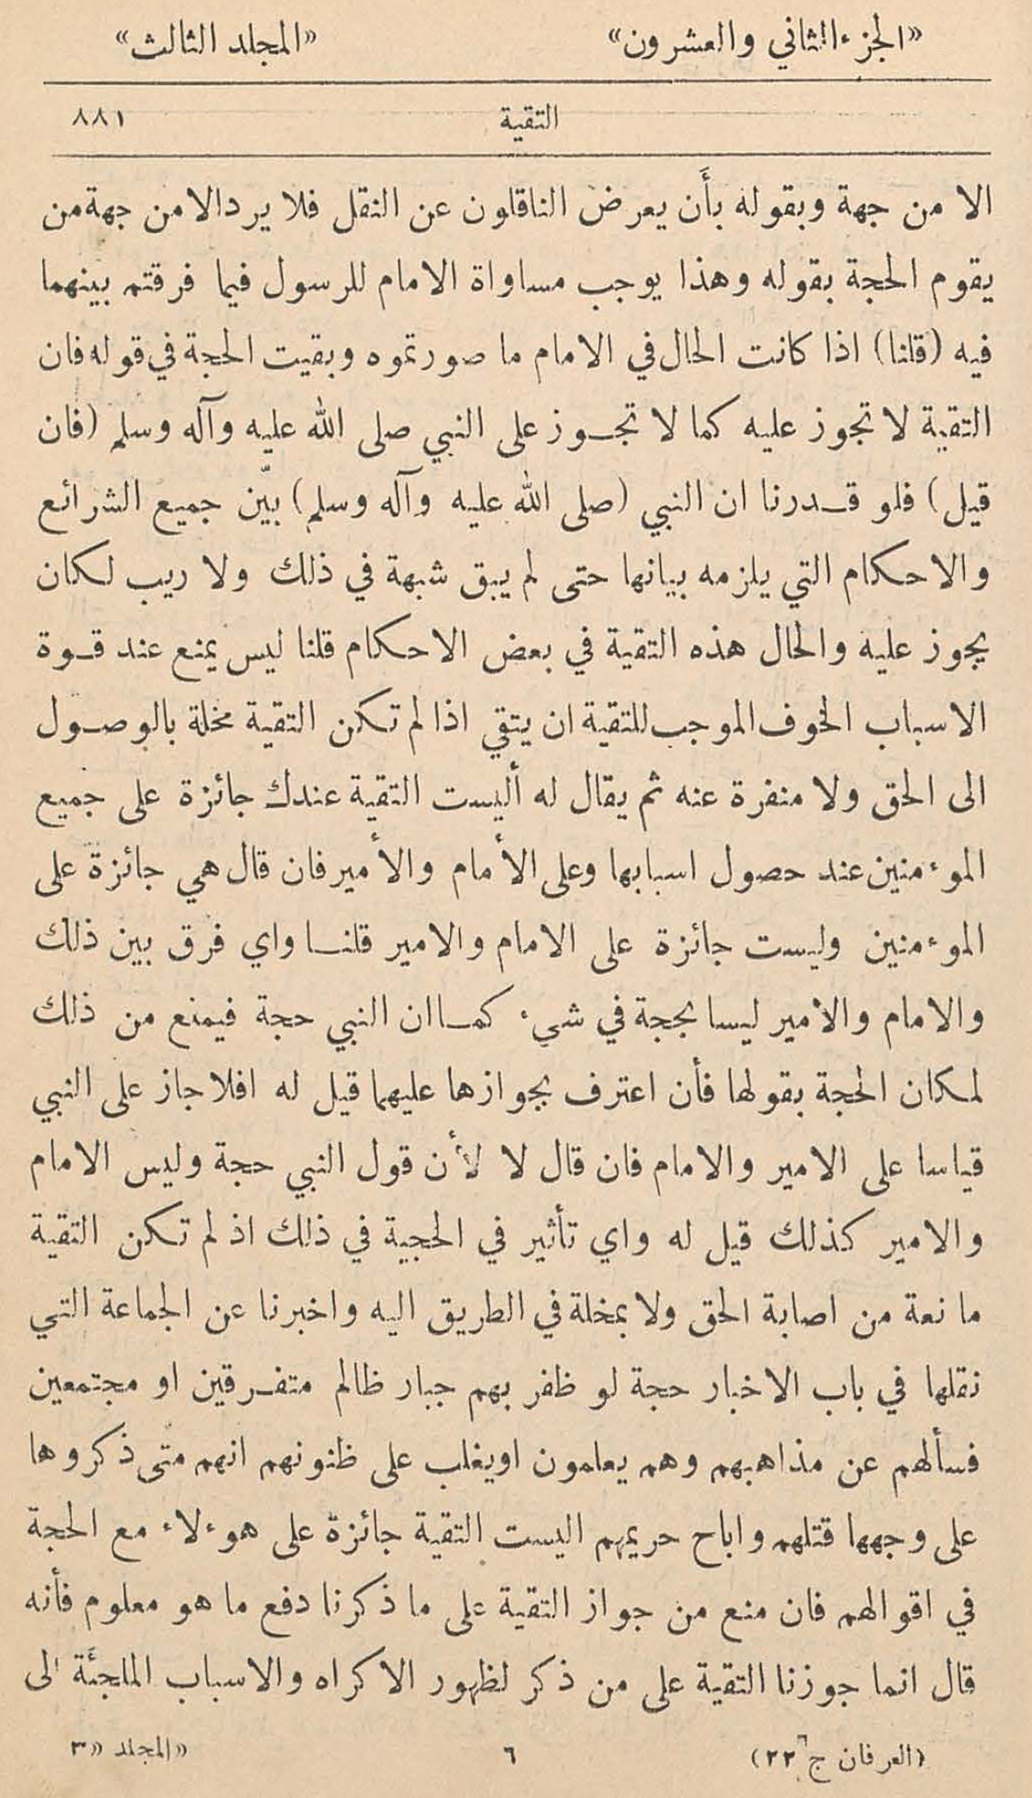 «الجزء الثاني والعشرون» «المجلد الثالث»
التقية ٨٨١
الا من جهة وبقوله بأَن يعرض الناقلون عن النقل فلا يرد الا من جهة من
يقوم الحجة بقوله وهذا يوجب مساواة الامام للرسول فيما فرقتم بينهما
فيه (قلنا) اذا كانت الحال في الامام ما صورتموه وبقيت الحجة في قوله فان
التقية لا تجوز عليه كما لا تجوز على النبي صلى الله عليه وآله وسلم (فان
قيل) فلو قدرنا ان النبي (صلى الله عليه وآله وسلم) بيّن جميع الشرائع
والاحكام التي يلزمه بيانها حتى لم يبق شبهة في ذلك ولا ريب لكان
يجوز عليه والحال هذه التقية في بعض الاحكام قلنا ليس يمنع عند قوة
الاسباب الخوف الموجب للتقية ان يتقي اذا لم تكن التقية مخلة بالوصول
الى الحق ولا منفرة عنه ثم يقال له أليست التقية عندك جائزة على جميع
الموءمنين عند حصول اسبابها وعلى الأمام والأمير فان قال هي جائزة على
الموءمنين وليست جائزة على الامام والامير قلنا واي فرق بين ذلك
والامام والامير ليسا بحجة في شيء كما ان النبي حجة فيمنع من ذلك
لمكان الحجة بقولها فأن اعترف بجوازها عليهما قيل له افلا جاز على النبي
قياسا على الامير والامام فان قال لا لأن قول النبي حجة وليس الامام
والامير كذلك قيل له واي تأثير في الحجية في ذلك اذ لم تكن التقية
مانعة من اصابة الحق ولا بمخلة في الطريق اليه واخبرنا عن الجماعة التي
نقلها في باب الاخبار حجة لو ظفر بهم جبار ظالم متفرقين او مجتمعين
فسألهم عن مذاهبهم وهم يعلمون او يغلب على ظنونهم انهم متى ذكروها
على وجهها قتلهم واباح حريمهم اليست التقية جائزة على هوءلاء مع الحجة
في اقوالهم فان منع من جواز التقية على ما ذكرنا دفع ما هو معلوم فأنه
قال انما جوزنا التقية على من ذكر لظهور الاكراه والاسباب الملجئة الى
(العرفان ج ٦ ٢٢) ٦ «المجلد «٣